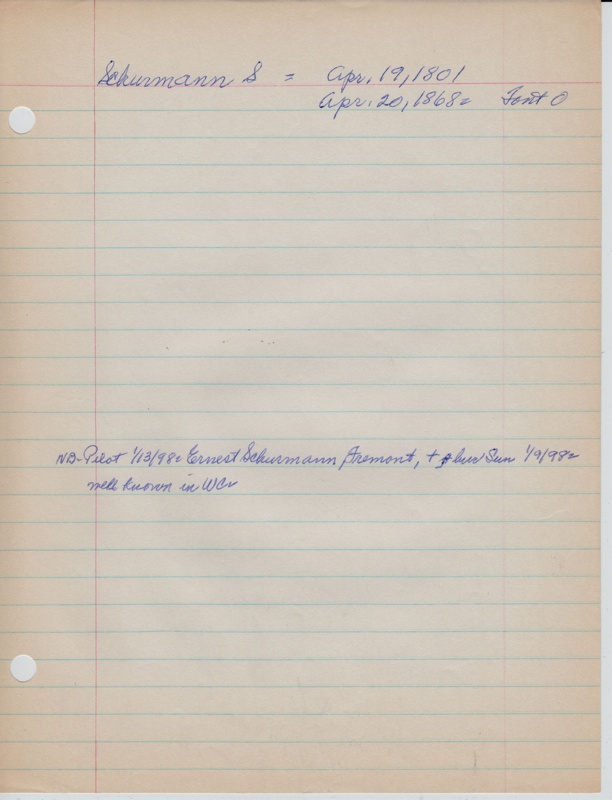 Schurmann S = Apr. 19, 1801
Apr. 20, 1868= Font O
NB-Pilot 1/13/98= Ernest Schurmann Fremont, + bur Sun 1/9/98=
well known in WC=